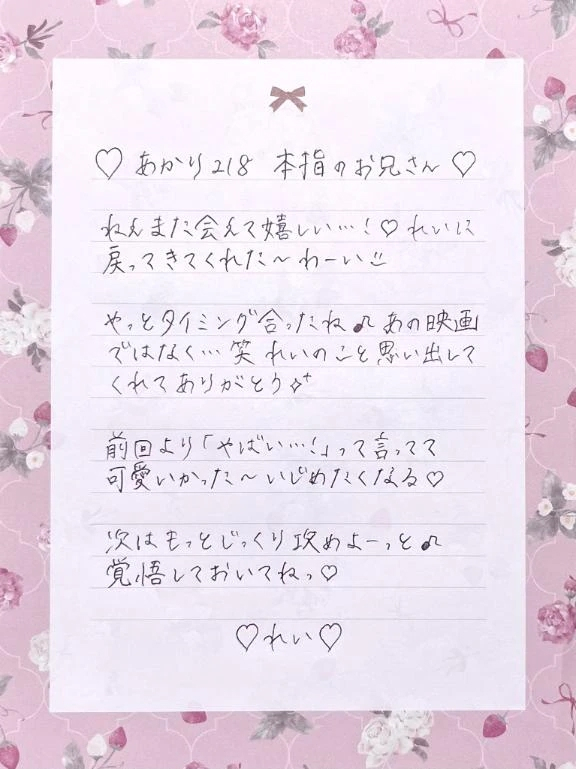 ♡ あかり218 本指のお兄さん ♡
ねえまた会えて嬉しい…！♡ れいに
戻ってきてくれた〜わーい
やっとタイミング合ったね♫ あの映画
ではなく…笑 れいのこと思い出して
くれてありがとう
前回より「やばい…！」って言ってて
可愛いかった〜いじめたくなる♡
次はもっとじっくり攻めよーっと♫
覚悟しておいてねっ♡
♡れい♡